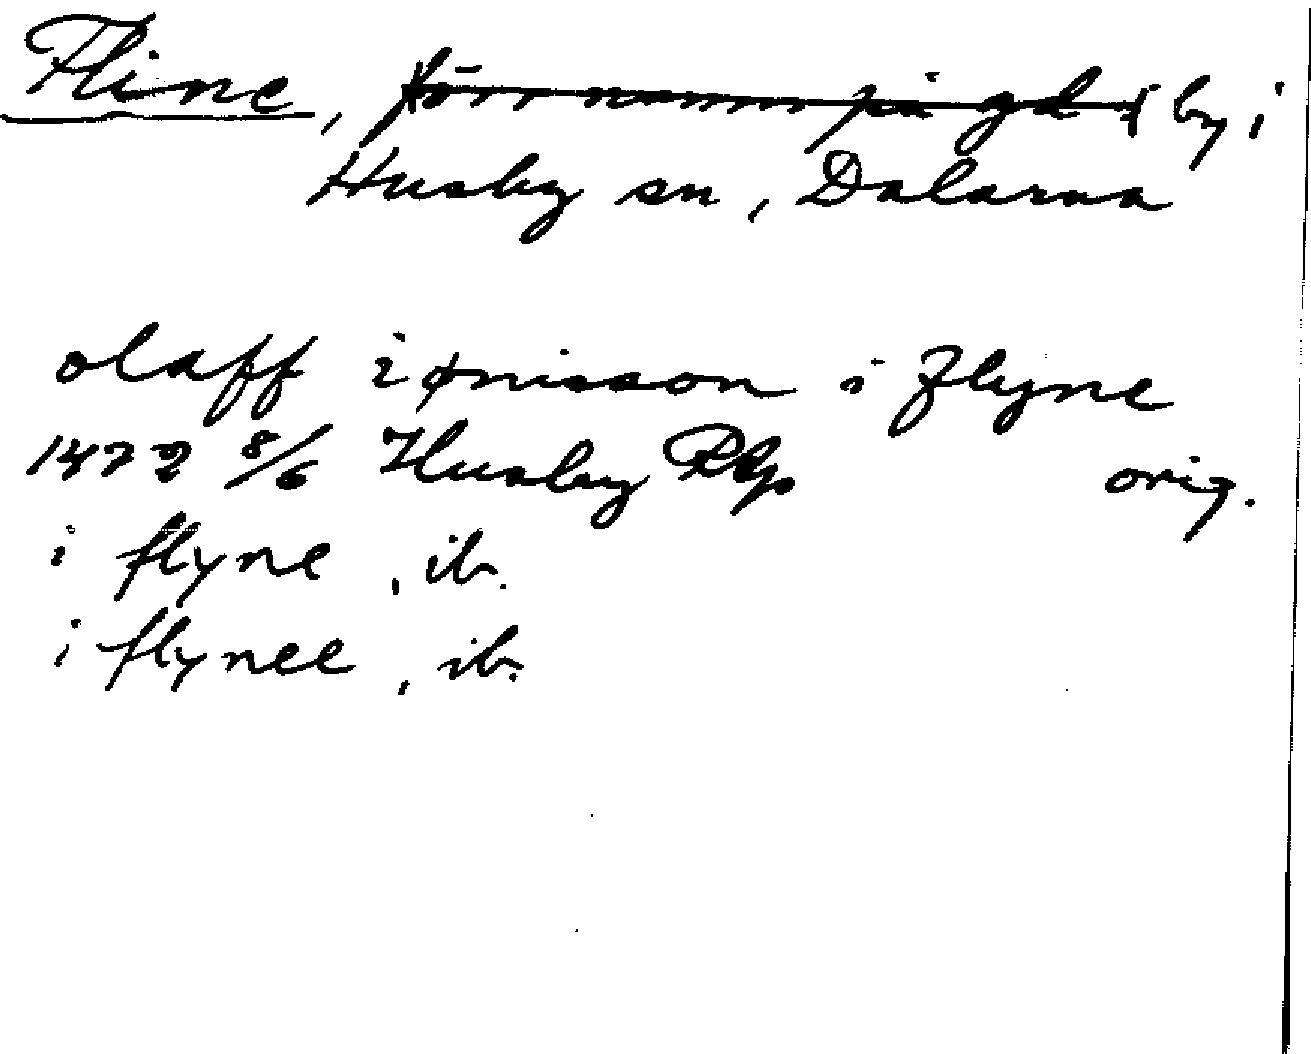 Fline, förr namn på gd i by i
Husby sn, Dalarna
olaff iønisson i flyne
1472 8/6 Husby Rgp orig.
i flyne, ib.
i flynee, ib.